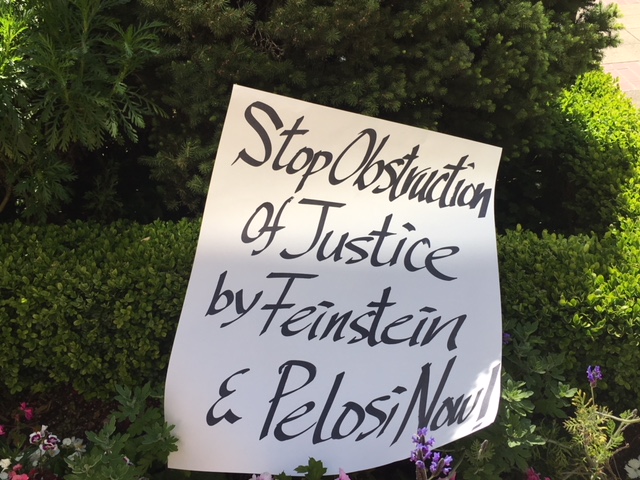 Stop Obstruction
Of Justice
by Feinstein
& Pelosi Now!